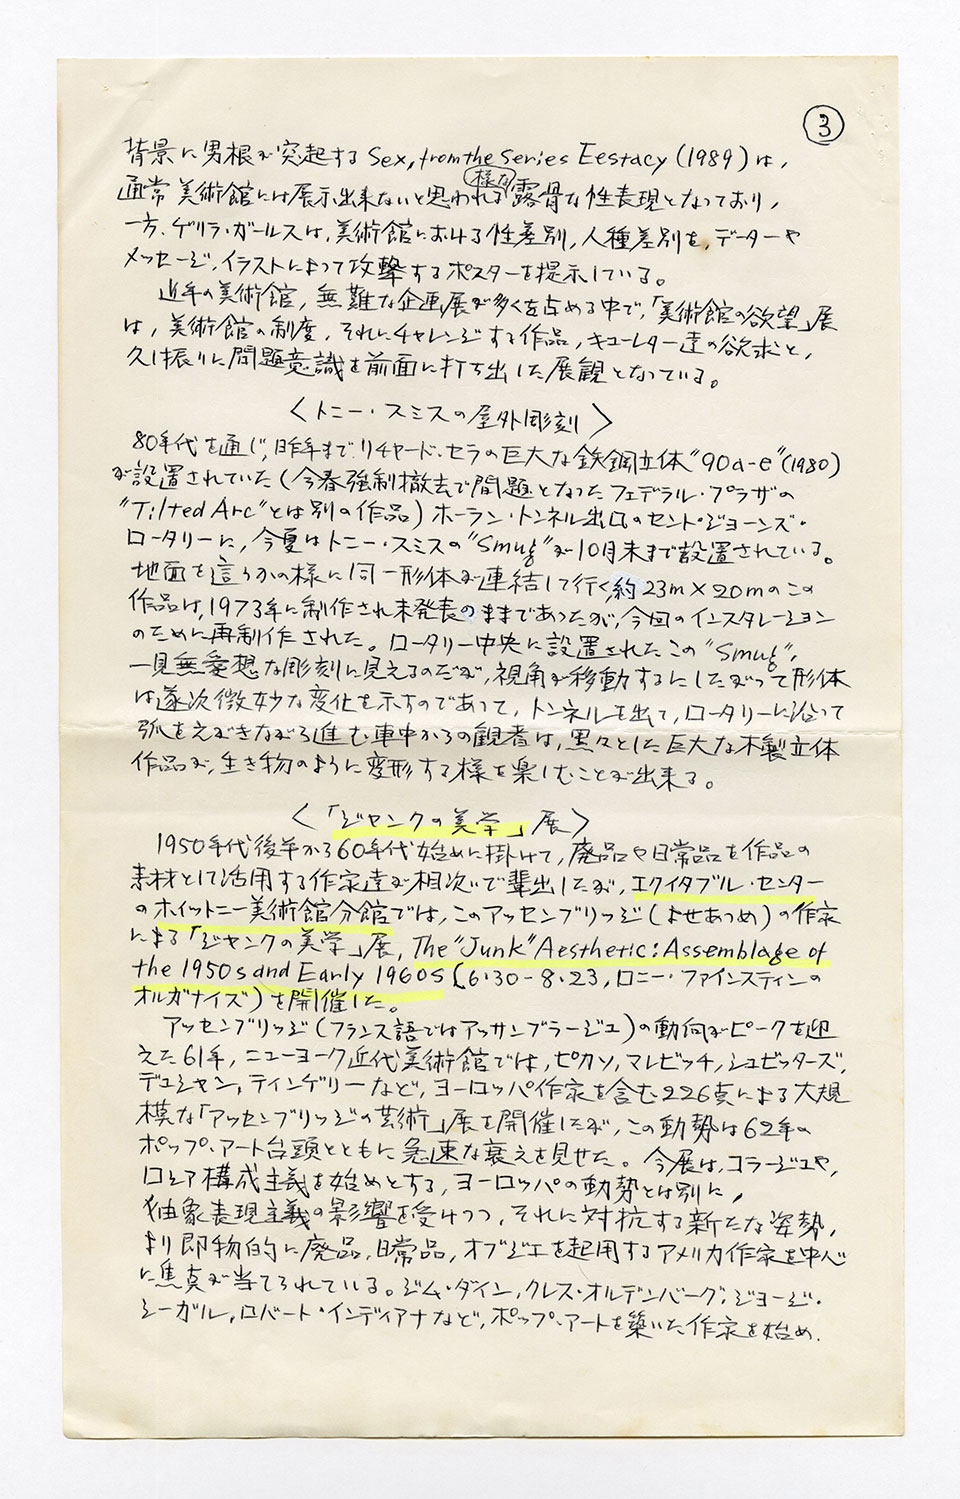 ③
背景に男根が突起する Sex, from the Series Eestacy (1989) は,
様な
通常美術館には展示出来ないと思われる露骨な性表現となっており,
一方, ゲリラ・ガールスは, 美術館における性差別, 人種差別を, データーや
メッセージ, イラストによって攻撃するポスターを提示している。
近年の美術館, 無難な企画展が多くを占める中で,「美術館の欲望」展
は, 美術館の制度, それにチャレンジする作品, キューレター達の欲求と,
久し振りに問題意識を前面に打ち出した展観となっている。
〈トニー・スミスの屋外彫刻〉
80年代を通じ, 昨年まで, リチャード・セラの巨大な鉄鋼立体“90a-e”(1980)
が設置されていた (今春強制撤去で問題となったフェデラル・プラザの
“Tilted Arc”とは別の作品) ホーラン・トンネル出口のセント・ジョーンズ・
ロータリーに, 今夏はトニー・スミスの“Smug”が10月末まで設置されている。
地面を這うかの様に同一形体が連結して行く, 約23m×20mのこの
作品は, 1973年に制作され未発表のままであったが, 今回のインスタレーション
のために再制作された。ロータリー中央に設置されたこの“Smug”,
一見無愛想な彫刻に見えるのだが, 視角が移動するにしたがって形体
は逐次微妙な変化を示すのであって, トンネルを出て, ロータリーに沿って
弧をえがきながら進む車中からの観者は, 黒々とした巨大な木製立体
作品が, 生き物のように変形する様を楽しむことが出来る。
〈「ジャンクの美学」展〉
1950年代後半から60年代始めに掛けて, 廃品や日常品を作品の
素材として活用する作家達が相次いで輩出したが, エクイタブル・センター
のホイットニー美術館分館では, このアッセンブリッジ (よせあつめ) の作家
による「ジャンクの美学」展, The “Junk” Aesthetic: Assemblage of
the 1950s and Early 1960s (6・30-8・23, ロニー・ファインスティンの
オルガナイズ) を開催した。
アッセンブリッジ (フランス語ではアッサンブラージュ) の動向がピークを迎
えた61年, ニューヨーク近代美術館では, ピカソ, マレビッチ, シュビッターズ,
デュシャン, ティンゲリーなど, ヨーロッパ作家を含む226点による大規
模な「アッセンブリッジの芸術」展を開催したが, この動勢は62年の
ポップ・アート台頭とともに急速な衰えを見せた。今展は, コラージュや,
ロシア構成主義を始めとする, ヨーロッパの動勢とは別に,
抽象表現主義の影響を受けつつ, それに対抗する新たな姿勢,
より即物的に廃品, 日常品, オブジェを起用するアメリカ作家を中心
に焦点が当てられている。ジム・ダイン, クレス・オルデンバーグ, ジョージ・
シーガル, ロバート・インディアナなど, ポップ・アートを築いた作家を始め,